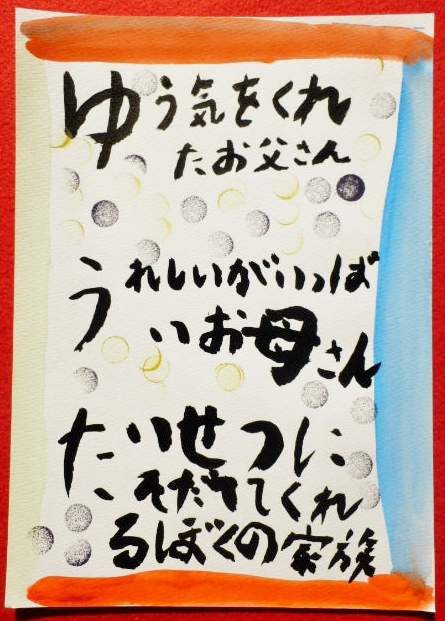 ゆう気をくれ
たお父さん
うれしいがいっぱ
いお母さん
たいせつに
そだててくれ
るぼくの家族